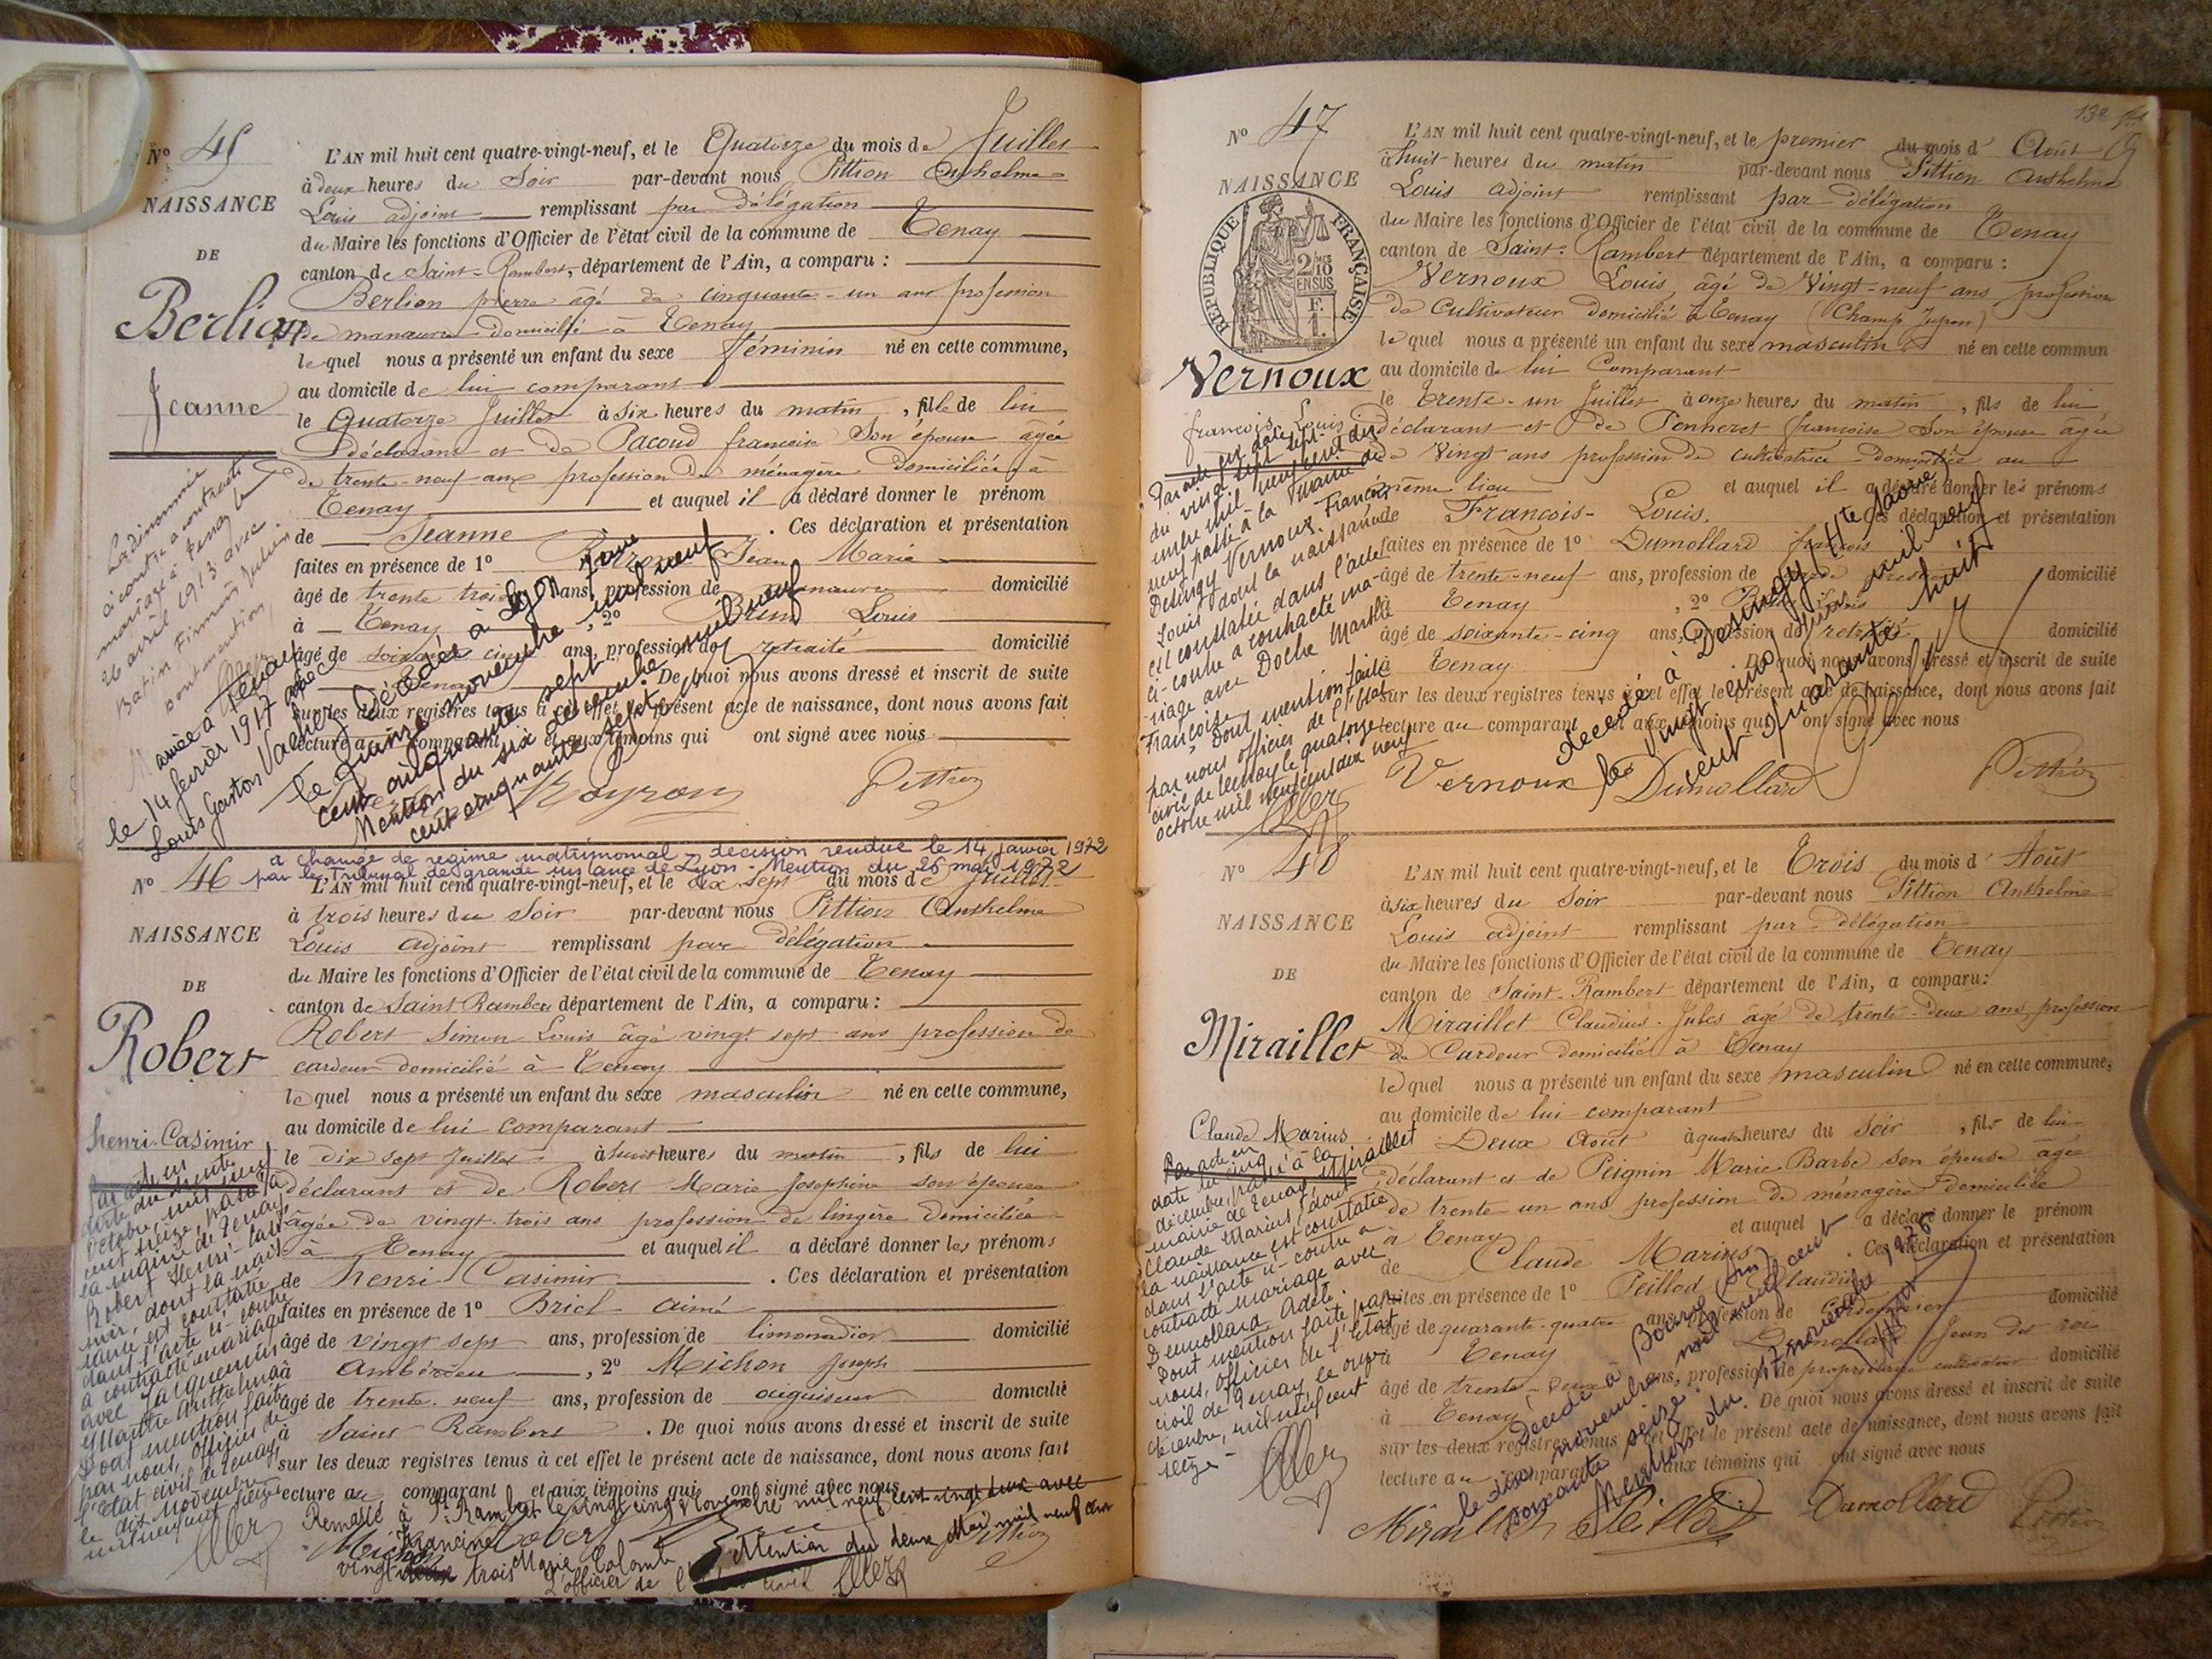 No 45
NAISSANCE
DE
Berlion
Jeanne
L'AN mil huit cent quatre-vingt-neuf, et le Quatorze du mois de Juillet
à deux heures du Soir par-devant nous Pittion Anthelme
Louis adjoint remplissant par délégation
du Maire les fonctions d'Officier de l'état civil de la commune de Tenay
canton de Saint-Rambert, département de l'Ain, a comparu :
Berlion pierre âgé de cinquante-un ans profession
de manœuvre domicilié à Tenay
lequel nous a présenté un enfant du sexe féminin né en cette commune,
au domicile de lui comparant
le Quatorze Juillet à six heures du matin, fille de lui
déclarant et de Pacoud francoise Son épouse âgée
de trente-neuf ans profession de ménagère domiciliée à
Tenay et auquel il a déclaré donner le prénom
de Jeanne . Ces déclaration et présentation
faites en présence de 1º Jean Marie
âgé de trente trois ans, profession de manœuvre domicilié
à Tenay , 2º Louis
âgé de soixante cinq ans, profession de retraité domicilié
à Tenay . De quoi nous avons dressé et inscrit de suite
sur les deux registres tenus à cet effet le présent acte de naissance, dont nous avons fait
lecture au comparant et aux témoins qui ont signé avec nous
Pittion
La dénommée
ci-contre a contracté
mariage à Tenay le
26 avril 1913 avec
Batin Firmin Julien
dont mention
Mariée à Tenay
le 14 février 1917 avec
Louis Gaston
Décédée à Lyon
le quinze novembre mil neuf
cent cinquante sept
Mention du six décembre mil neuf
cent cinquante sept
a changé de régime matrimonial - décision rendue le 14 janvier 1972
par le Tribunal de grande instance de Lyon - Mention du 26 mai 1972
No 46
NAISSANCE
DE
Robert
henri-Casimir
L'AN mil huit cent quatre-vingt-neuf, et le dix sept du mois de juillet
à trois heures du Soir par-devant nous Pittion Anthelme
Louis adjoint remplissant par délégation
du Maire les fonctions d'Officier de l'état civil de la commune de Tenay
canton de Saint Rambert département de l'Ain, a comparu :
Robert Simon Louis âgé vingt sept ans profession de
cardeur domicilié à Tenay
lequel nous a présenté un enfant du sexe masculin né en cette commune,
au domicile de lui comparant
le dix sept Juillet à huit heures du matin, fils de lui
déclarant et de Robert Marie Josephine son épouse
âgée de vingt trois ans profession de lingère domiciliée
à Tenay et auquel il a déclaré donner les prénoms
de henri Casimir . Ces déclaration et présentation
faites en présence de 1º Briel aimé
âgé de vingt sept ans, profession de limonadier domicilié
à Ambérieu , 2º Michon Joseph
âgé de trente neuf ans, profession de aiguiseur domicilié
à Saint Rambert . De quoi nous avons dressé et inscrit de suite
sur les deux registres tenus à cet effet le présent acte de naissance, dont nous avons fait
lecture au comparant et aux témoins qui ont signé avec nous
Par acte en
date du trente
octobre mil neuf
cent treize, passé à
la mairie de Tenay
Robert Henri-Casimir,
dont la naissance
est constatée
dans l'acte ci-contre
a contracté mariage
avec Jacquemin
Dont mention faite
par nous, officier de
l'état civil de Tenay
le dix novembre
mil neuf cent treize
Remarié à St Rambert le vingt cinq novembre mil neuf cent vingt deux avec
Francine Marie Colomb
Mention du deux Mai mil neuf cent
vingt trois
L'officier de l'état civil
Michon Robert Pittion
No 47
NAISSANCE
RÉPUBLIQUE FRANÇAISE
2/10 EN SUS
Vernoux
francois Louis
132
L'AN mil huit cent quatre-vingt-neuf, et le premier du mois d'Août
à huit heures du matin par-devant nous Pittion Anthelme
Louis adjoint remplissant par délégation
du Maire les fonctions d'Officier de l'état civil de la commune de Tenay
canton de Saint-Rambert département de l'Ain, a comparu :
Vernoux Louis, âgé de Vingt-neuf ans profession
de Cultivateur domicilié à Tenay (Champ Jupon)
lequel nous a présenté un enfant du sexe masculin né en cette commun
au domicile de lui Comparant
le Trente-un Juillet à onze heures du matin, fils de lui
déclarant et de Ponneret francoise Son épouse âgée
de Vingt ans profession de cultivatrice domiciliée au
même lieu et auquel il a déclaré donner les prénoms
de Francois-Louis. Ces déclaration et présentation
faites en présence de 1º Dumollard francois
âgé de trente-neuf ans, profession de domicilié
à Tenay , 2º
âgé de soixante-cinq ans, profession de retraité domicilié
à Tenay . De quoi nous avons dressé et inscrit de suite
sur les deux registres tenus à cet effet le présent acte de naissance, dont nous avons fait
lecture au comparant et aux témoins qui ont signé avec nous
Vernoux Dumollard Pittion
Par acte en date
du vingt sept septembre
mil neuf cent dix
neuf passé à la mairie de
Desingy Vernoux François
Louis dont la naissance
est constatée dans l'acte
ci-contre a contracté mariage
avec Doche Marthe
Françoise
Dont mention faite
par nous officier de l'état
civil de Tenay le quatorze
octobre mil neuf cent dix neuf
Décédé à Desingy Hte Savoie
le vingt cinq juin mil neuf
cent quarante huit
No 48
NAISSANCE
DE
Miraillet
Claude Marius
L'AN mil huit cent quatre-vingt-neuf, et le Trois du mois d'Août
à six heures du Soir par-devant nous Pittion Anthelme
Louis adjoint remplissant par délégation
du Maire les fonctions d'Officier de l'état civil de la commune de Tenay
canton de Saint-Rambert département de l'Ain, a comparu:
Miraillet Claudius-Jules âgé de trente-Deux ans profession
de Cardeur domicilié à Tenay
lequel nous a présenté un enfant du sexe masculin né en cette commune,
au domicile de lui comparant
Deux Août à quatre heures du Soir, fils de lui
déclarant et de Peignin Marie-Barbe Son épouse âgée
de trente un ans profession de ménagère domiciliée
à Tenay et auquel a déclaré donner le prénom
de Claude Marius . Ces déclaration et présentation
faites en présence de 1º Peillod Claudius
âgé de quarante-quatre ans, profession de Cordonnier domicilié
à Tenay Dumollard Jean
âgé de trente-Deux ans, profession de propriétaire cultivateur domicilié
à Tenay . De quoi nous avons dressé et inscrit de suite
sur les deux registres tenus à cet effet le présent acte de naissance, dont nous avons fait
lecture au comparant aux témoins qui ont signé avec nous
Miraillet Peillod Dumollard Pittion
Par acte en
date du cinq
décembre, passé à la
mairie de Tenay, Miraillet
Claude Marius, dont
la naissance est constatée
dans l'acte ci-contre a
contracté mariage avec
Dumollard Adèle.
Dont mention faite par
nous, officier de l'état
civil de Tenay le onze
décembre, mil neuf cent
Décédé à Bourg (Ain)
le dix novembre mil neuf cent
soixante seize.
Mention du 17 novembre 1976